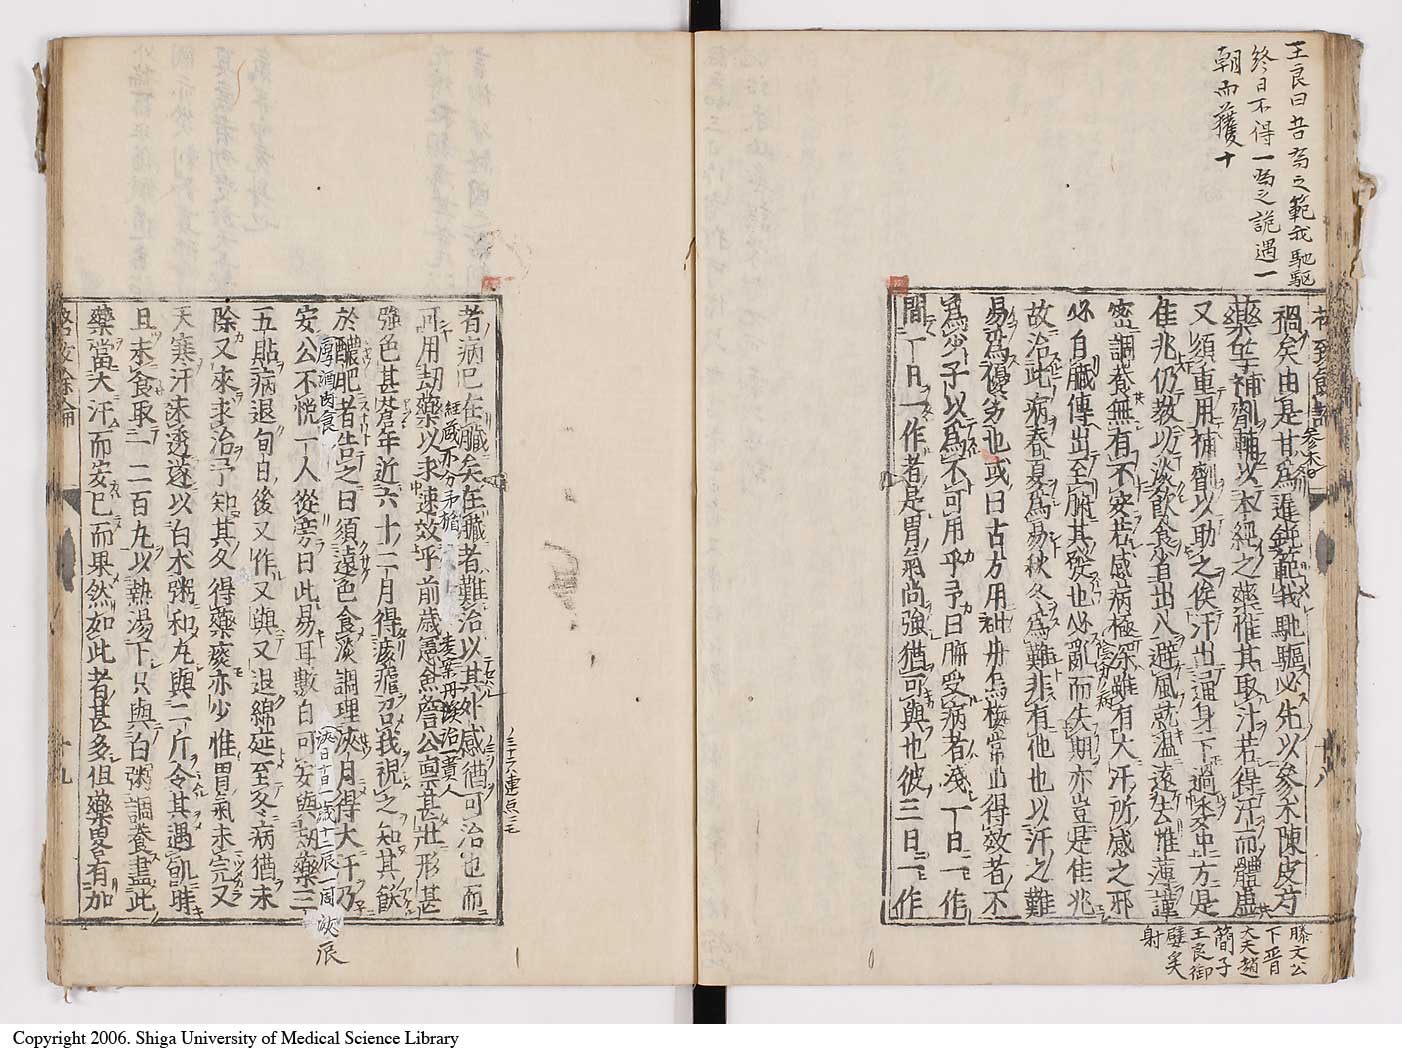 王良曰吾爲之範我馳駆
終日不得一爲之詭遇一
朝而獲十
格致餘論
十八
禍矣由是甘爲遲鈍範我馳驅必先以參朮陳皮芍
藥等補劑輔以本經之藥惟其取汗若得汗而體虛
又須重用補劑以助之俟汗出通身下過委中方是
佳兆仍教以淡飲食省出入避風就溫遠去帷薄謹
密調養無有不安若感病極深雖有大汗所感之邪
必自臟傳出至腑其發也必亂而失期亦豈是佳兆
故治此病春夏爲易秋冬爲難非有他也以汗之難
易爲優劣也或曰古方用砒丹烏梅常山得效者不
爲少子以爲不可用乎予曰腑受病者淺一日一作
間一日一作者是胃氣尚強猶可與也彼三日一作
滕文公
下晋
大夫趙
簡子
王良御
嬖奚
射
者病已在臟矣在臟者難治以其外感猶可治也而
可用劫藥以求速效乎前歲憲僉詹公稟甚壯形甚
強色甚蒼年近六十二月得痎瘧召我視之知其飫
於醲肥者告之曰須遠色食淡調理浹月得大汗乃
厚酒肉食
安公不悅一人從旁曰此易耳數日可安與劫藥三
浹日十日一歲十二辰一周浹
辰
五貼病退旬日後又作又與又退綿延至冬病猶未
除又來求治予知其久得藥痰亦少惟胃氣未完又
天寒汗未透遂以白朮粥和丸與二斤令其遇飢時
且未食取一二百丸以熱湯下只與白粥調養盡此
藥當大汗而安已而果然如此者甚多但藥畧有加
格致餘論
十九